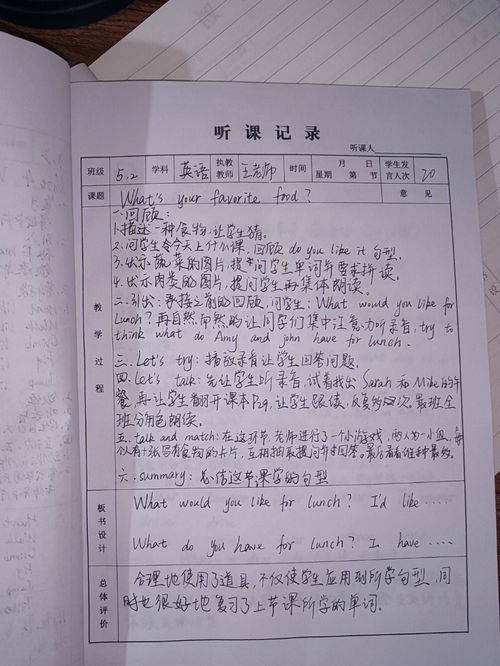 听课记录
听课人
班级 5.2 学科 英语 执教教师 王老师 时间 月 日 星期 第 节 学生发言人次 20
课题 What's your favorite food? 意见
教学过程
一.回顾:
1.描述一种食物,让学生猜。
2.问学生今天上什么课,回顾do you like it句型.
3.出示蔬菜的图片,提问学生单词并要求拼读.
4.出示肉类的图片,提问学生再集体朗读.
二.引出:承接之前的回顾,问学生:What would you like for
lunch?再自然而然的让同学们集中注意力听录音,try to
think what do Amy and john have for lunch.
三.Let's try:播放录音让学生回答问题.
四.Let's talk:先让学生听录音,试着找出Sarah和Mike的午
餐,再让学生翻开课本,让学生跟读,反复的次,最后全
班分角色朗读.
五.talk and match:在这环节,老师进行了一个小游戏,两人为一小组,每
组有十张写有食物的卡片,互相抽取提问并回答。最后看看谁种最多.
六.summary:总结这节课学的句型
板书设计
What would you like for lunch? I'd like ....
What do you have for lunch? I have ....
总体评价
合理地使用了道具,不仅使学生应用到所学句型,同
时也很好地复习了上节课所学的单词.